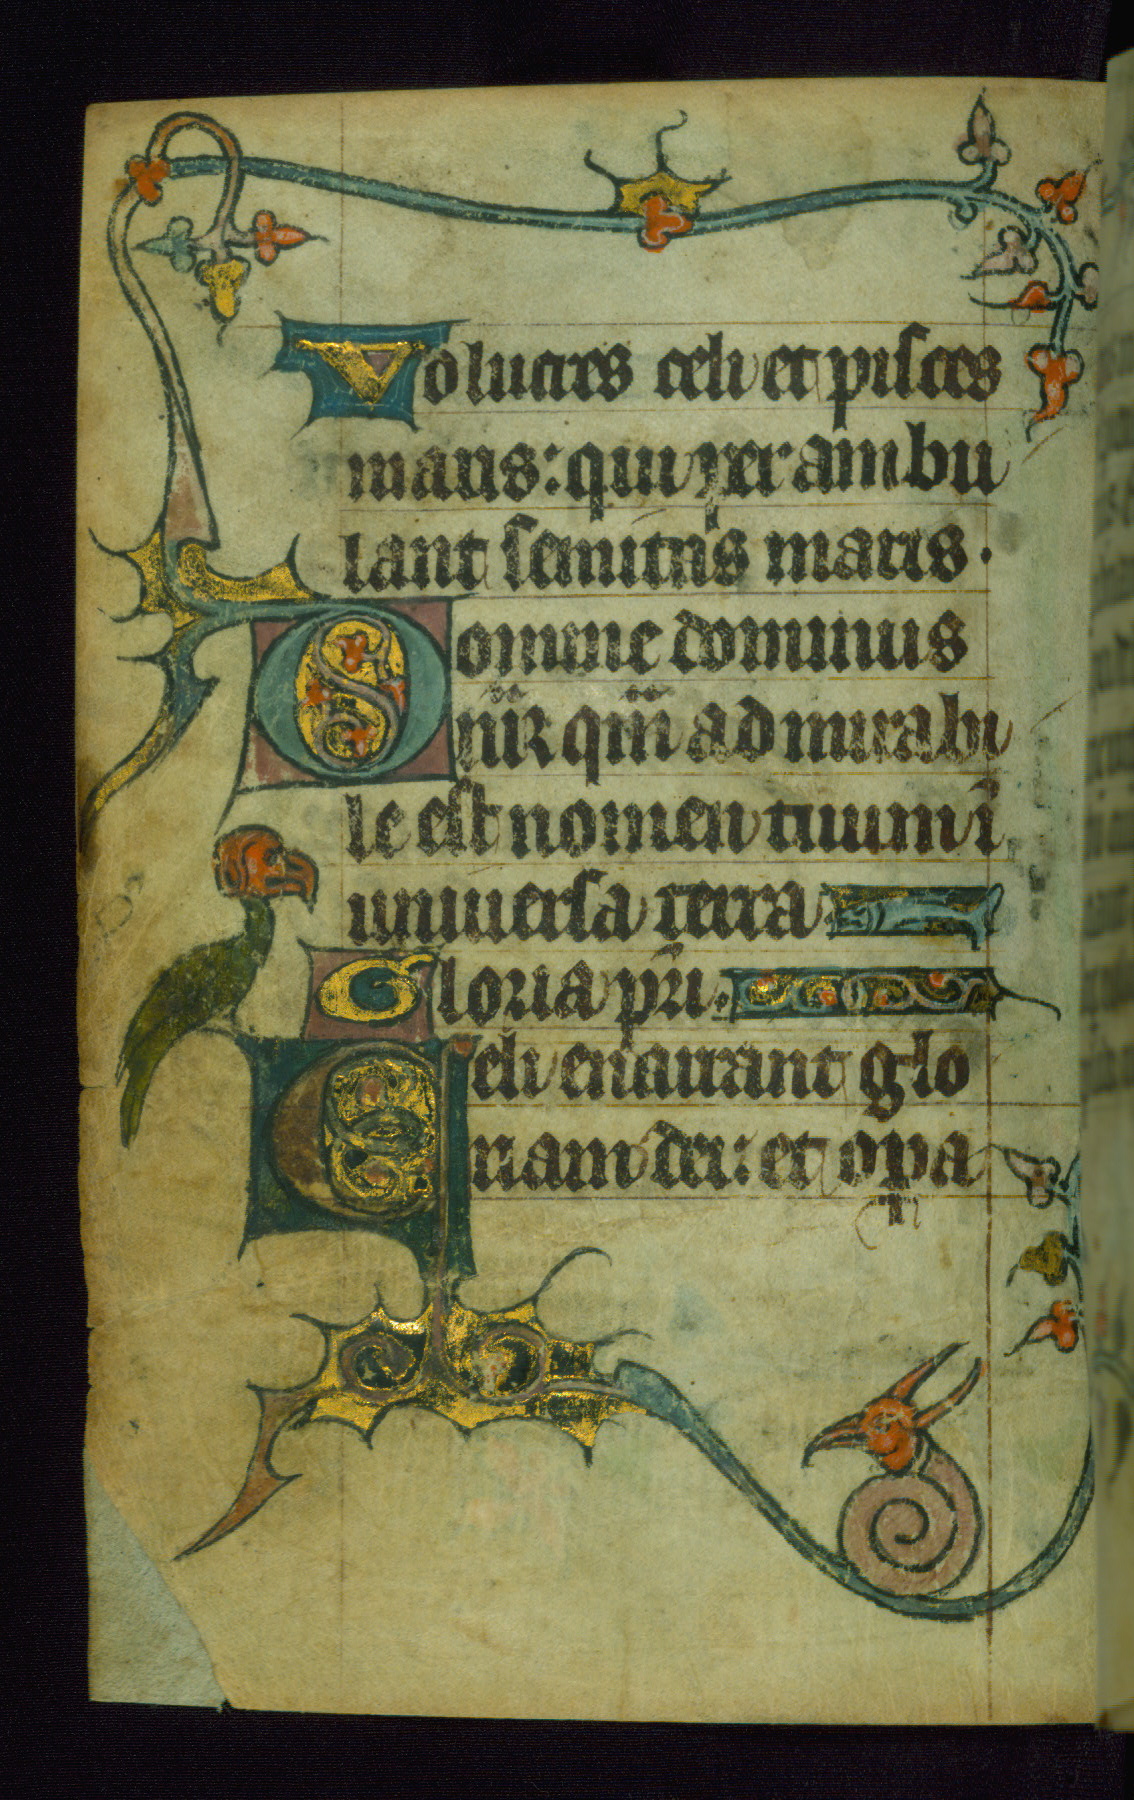 Volucres celi et pisces
maris: qui perambu
lant semitas maris.
Domine dominus
nr̄ qm̄ admirabi
le est nomen tuum ī
universa terra
Gloria pr̄i.
Celi enarrant glo
riam dei: et opa